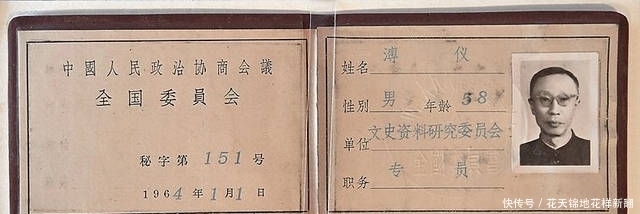 中國人民政治协商会議
全国委員会
秘字第151号
1964年1月1日
姓名 溥仪
性別 男 年龄 58
单位 文史资料研究委员会
职务 专員
快传号 / 花天锦地花样新翻